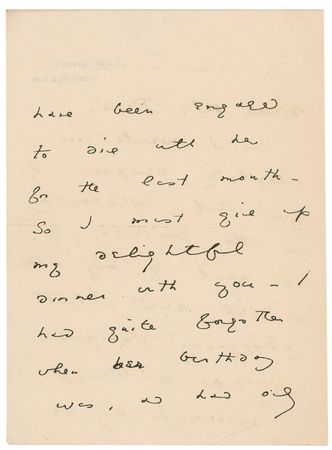 have been engaged
to dine with her
for the last month –
So I must give up
my delightful
dinner with you – I
had quite forgotten
when her birthday
was, and had only